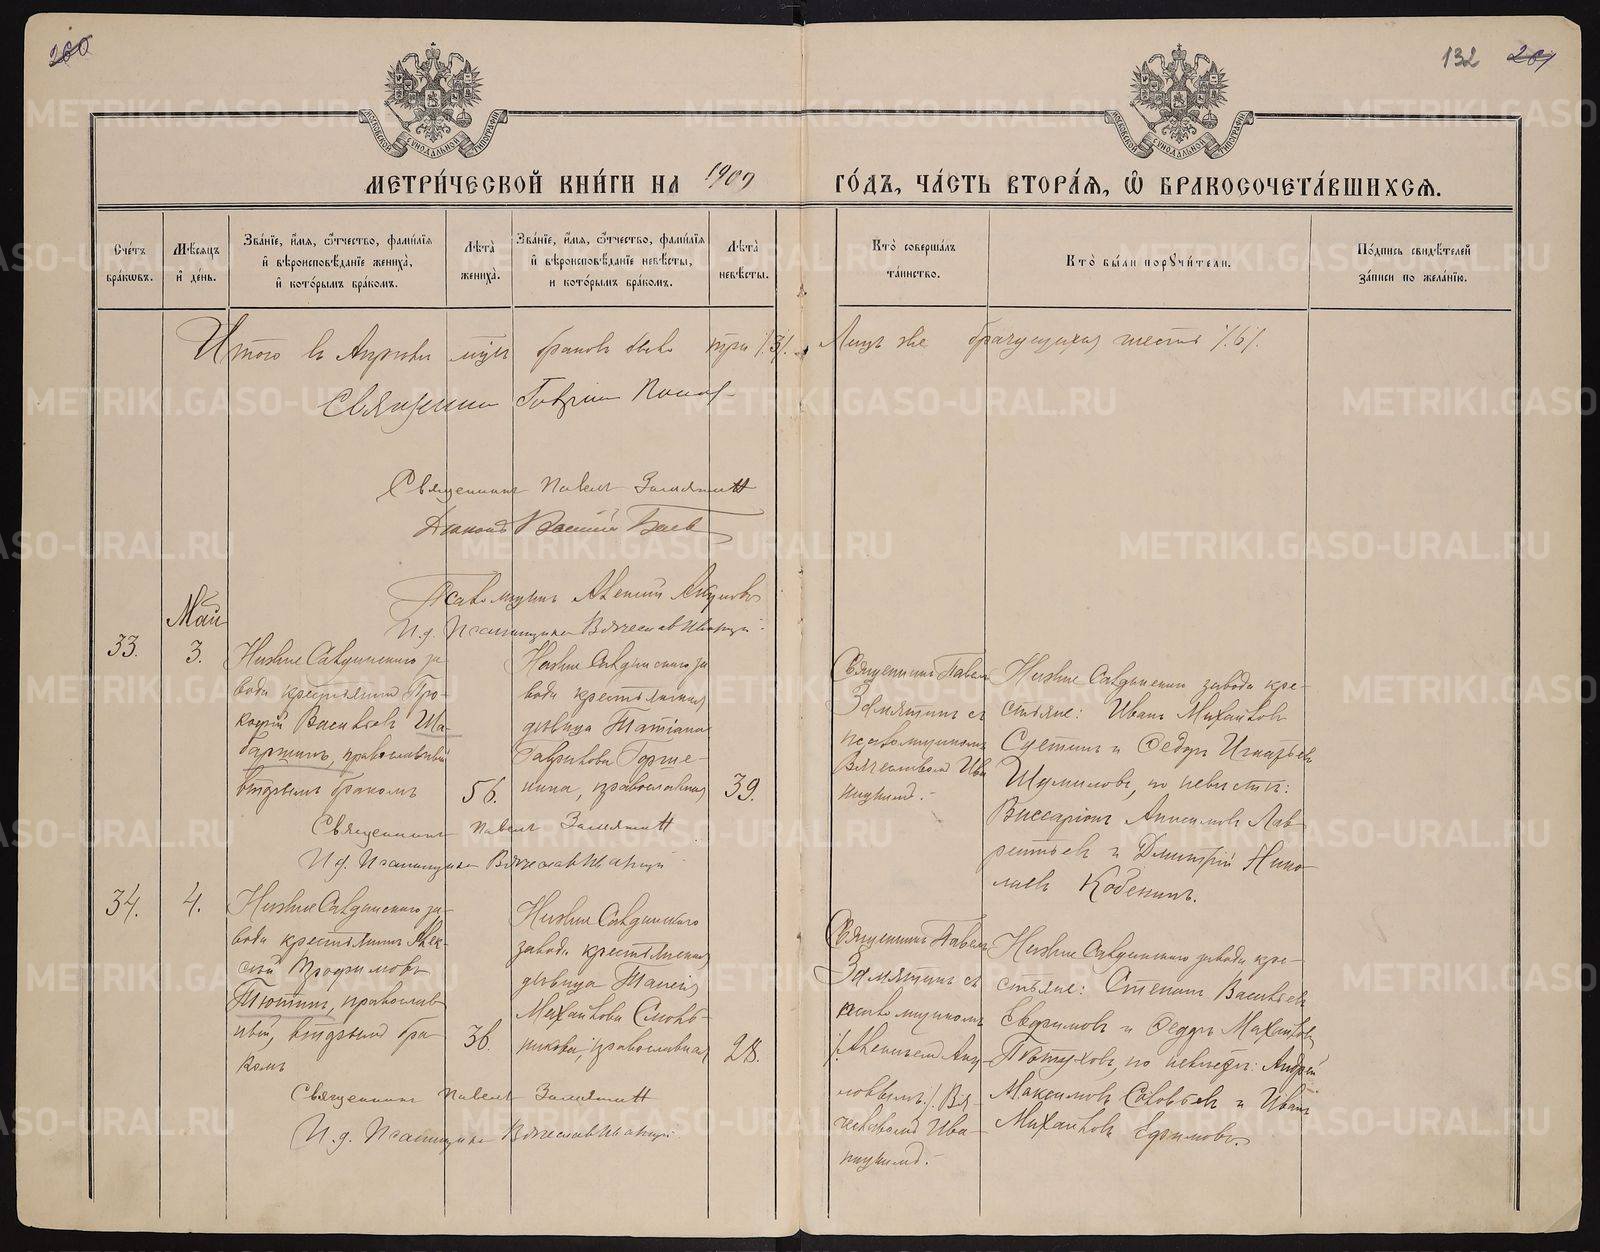 260
132 261
МОСКОВСКОЙ СѴНОДАЛЬНОЙ ТИПОГРАФІИ
МОСКОВСКОЙ СѴНОДАЛЬНОЙ ТИПОГРАФІИ
МЕТРИ́ЧЕСКОЙ КНИ́ГИ НА 1909 ГО́ДЪ, ЧА́СТЬ ВТОРА́Ѧ, Ѽ БРАКОСОЧЕТА́ВШИХСѦ.
Сче́тъ бра́кѡвъ.
Мѣ́сѧцъ и҆ де́нь.
Зва́нїе, и҆́мѧ, ѻ҆́тчество, фами́лїѧ и҆ вѣроисповѣ́данїе жениха̀, и҆ кото́рымъ бра́комъ.
Лѣ́та жениха̀.
Зва́нїе, и҆́мѧ, ѻ҆́тчество, фами́лїѧ и҆ вѣроисповѣ́данїе невѣ́сты, и кото́рымъ бра́комъ.
Лѣ́та невѣ́сты.
Кто̀ соверша́лъ та́инство.
Кто̀ бы́ли порꙋчи́тели.
По́дпись свидѣ́телей за́писи по жела́нїю.
Итого въ Апрѣлѣ мцѣ браковъ было три /3/. Лицъ же брачущихся шесть /6/.
Священникъ Гавріилъ Поповъ
Священникъ Павелъ Замятинъ
Діаконъ Василій Баевъ
Псаломщикъ Евгеній
И.д. Псаломщика Вячеславъ Иваницкій
Май
33.
3.
Нижне Салдинскаго за-
вода крестьянинъ Про-
копій Васильевъ Ша-
баршинъ, православный
вторымъ бракомъ
56.
Нижне Салдинскаго за
вода крестьянская
дѣвица Татіана
Гаврилова Горше-
нина, православная
39.
Священникъ Павелъ
Замятинъ съ
псаломщикомъ
Вячеславомъ Ива
ницкимъ.
Нижне Салдинскаго завода кре-
стьяне: Иванъ Михайловъ
Суетинъ и Федоръ Игнатьевъ
Шумиловъ, по невѣстѣ:
Виссаріонъ Анисимовъ Лав-
рентьевъ и Димитрій Нико-
лаевъ Кобенинъ.
Священникъ Павелъ Замятинъ
И.д. Псаломщика Вячеславъ Иваницкій
34.
4.
Нижне Салдинскаго за-
вода крестьянинъ Алек-
сѣй Трофимовъ
Тютинъ, православ-
ный, вторымъ бра-
комъ
36.
Нижне Салдинскаго
завода крестьянская
дѣвица Таисія
Михайлова
православная
28.
Священникъ Павелъ
Замятинъ съ
псаломщикомъ
Вя-
чеславомъ Ива-
ницкимъ.
Нижне Салдинскаго завода кре-
стьяне: Степанъ Васильевъ
Евдокимовъ и Федоръ Михайловъ
Пѣтуховъ, по невѣстѣ: Андрей
Максимовъ Соловьевъ и Иванъ
Михайловъ Ефимовъ.
Священникъ Павелъ Замятинъ
И.д. Псаломщика Вячеславъ Иваницкій
METRIKI.GASO-URAL.RU